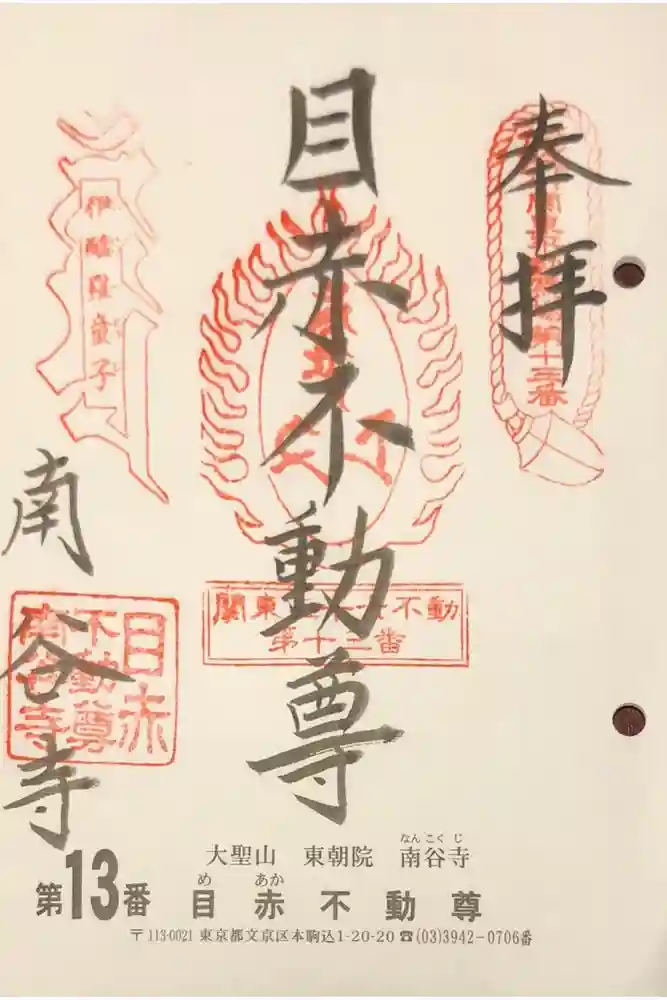 奉拝
関東三十六不動霊場第十三番
目赤不動尊
関東三十六不動
第十三番
伊醯羅童子
南谷寺
目赤
不動尊
南谷寺
大聖山 東朝院 南谷寺
なんこくじ
第13番 目赤不動尊
め あか
〒113-0021 東京都文京区本駒込1-20-20 ☎(03)3942-0706番